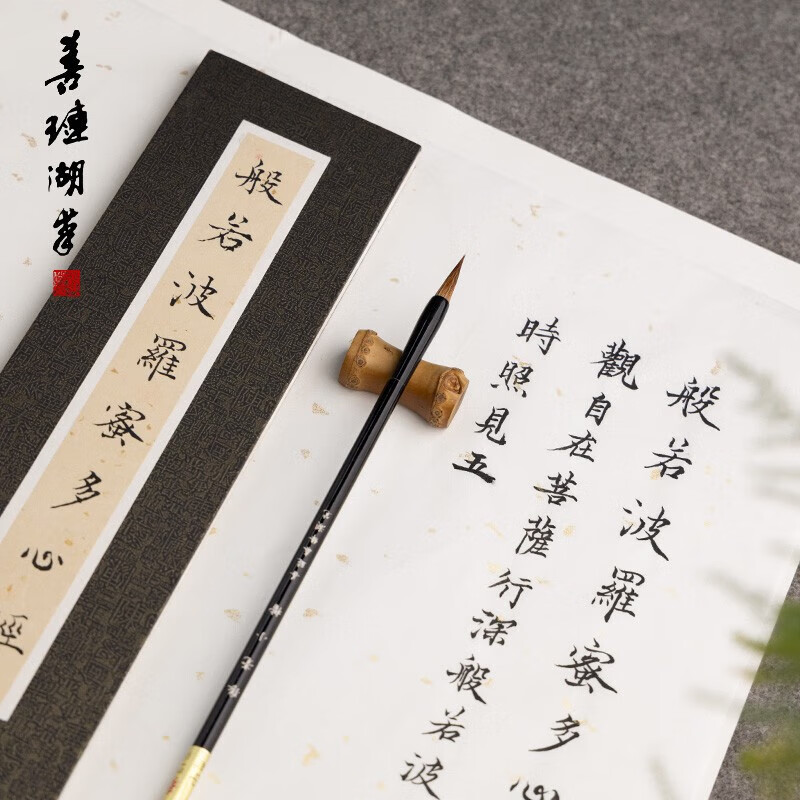 善琏湖筆
般若波羅蜜多心經
般若波羅蜜多心
觀自在菩薩行深般若波
時照見五